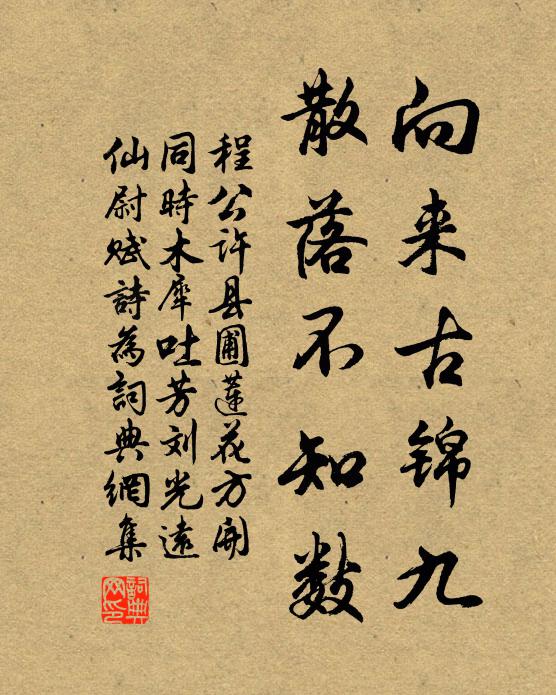 向来古锦九
散落不知数
程公许县圃蓮花方開
同時木犀吐芳刘光遠
仙尉赋詩為詞典網集
詞典网印